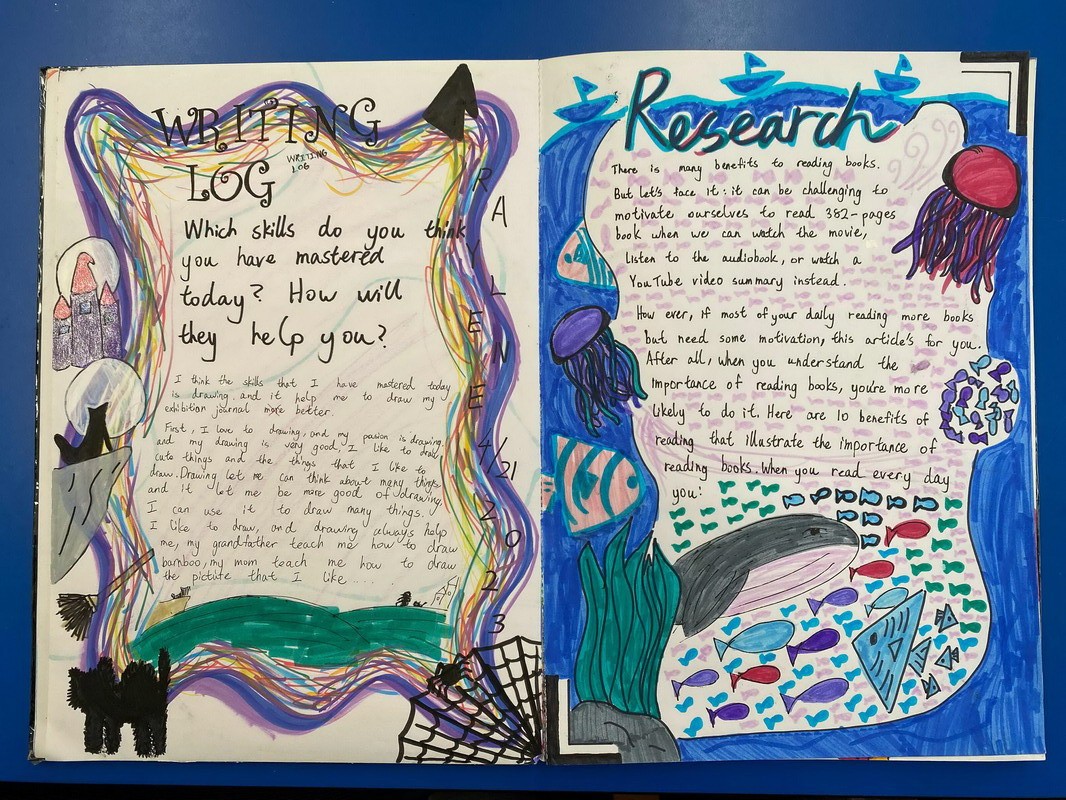 WRITING
LOG
WRITING
LOG
Which skills do you think
you have mastered
today? How will
they help you?
I think the skills that I have mastered today
is drawing. and it help me to draw my
exhibition journal more better.
First, I love to drawing, and my pasion is drawing,
and my drawing is very good, I like to draw
cute things and the things that I like to
draw. Drawing let me can think about many things
and it let me be more good of drawing,
I can use it to draw many things.
I like to draw, and drawing always help
me, my grandfather teach me how to draw
bamboo, my mom teach me how to draw
the pictute that I like ....
RAILENE
4/21
2023
Research
There is many benefits to reading books.
But let's face it: it can be challenging to
motivate ourselves to read 382-pages
book when we can watch the movie,
listen to the audiobook, or watch a
YouTube video summary instead.
How ever, if most of your daily reading more books
but need some motivation, this article's for you.
After all, when you understand the
importance of reading books, you're more
likely to do it. Here are 10 benefits of
reading that illustrate the importance of
reading books. When you read every day
you: